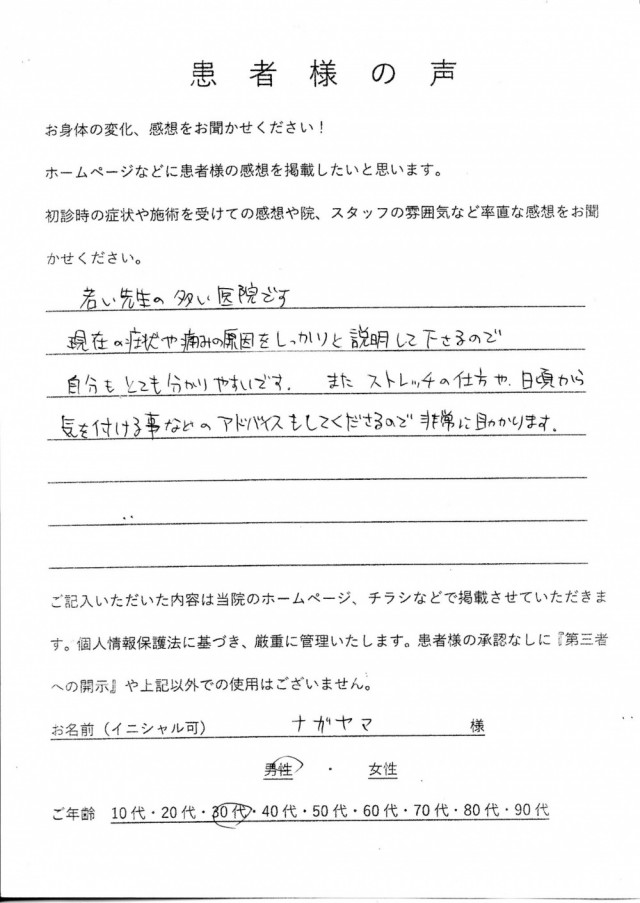 患者様の声
お身体の変化、感想をお聞かせください！
ホームページなどに患者様の感想を掲載したいと思います。
初診時の症状や施術を受けての感想や院、スタッフの雰囲気など率直な感想をお聞
かせください。
若い先生の多い医院です
現在の症状や痛みの原因をしっかりと説明して下さるので
自分もとても分かりやすいです. また ストレッチの仕方や、日頃から
気を付ける事などのアドバイスもしてくださるので非常に助かります.
ご記入いただいた内容は当院のホームページ、チラシなどで掲載させていただきま
す。個人情報保護法に基づき、厳重に管理いたします。患者様の承認なしに『第三者
への開示』や上記以外での使用はございません。
お名前（イニシャル可） ナガヤマ 様
男性 ・ 女性
ご年齢 10代・20代・30代・40代・50代・60代・70代・80代・90代